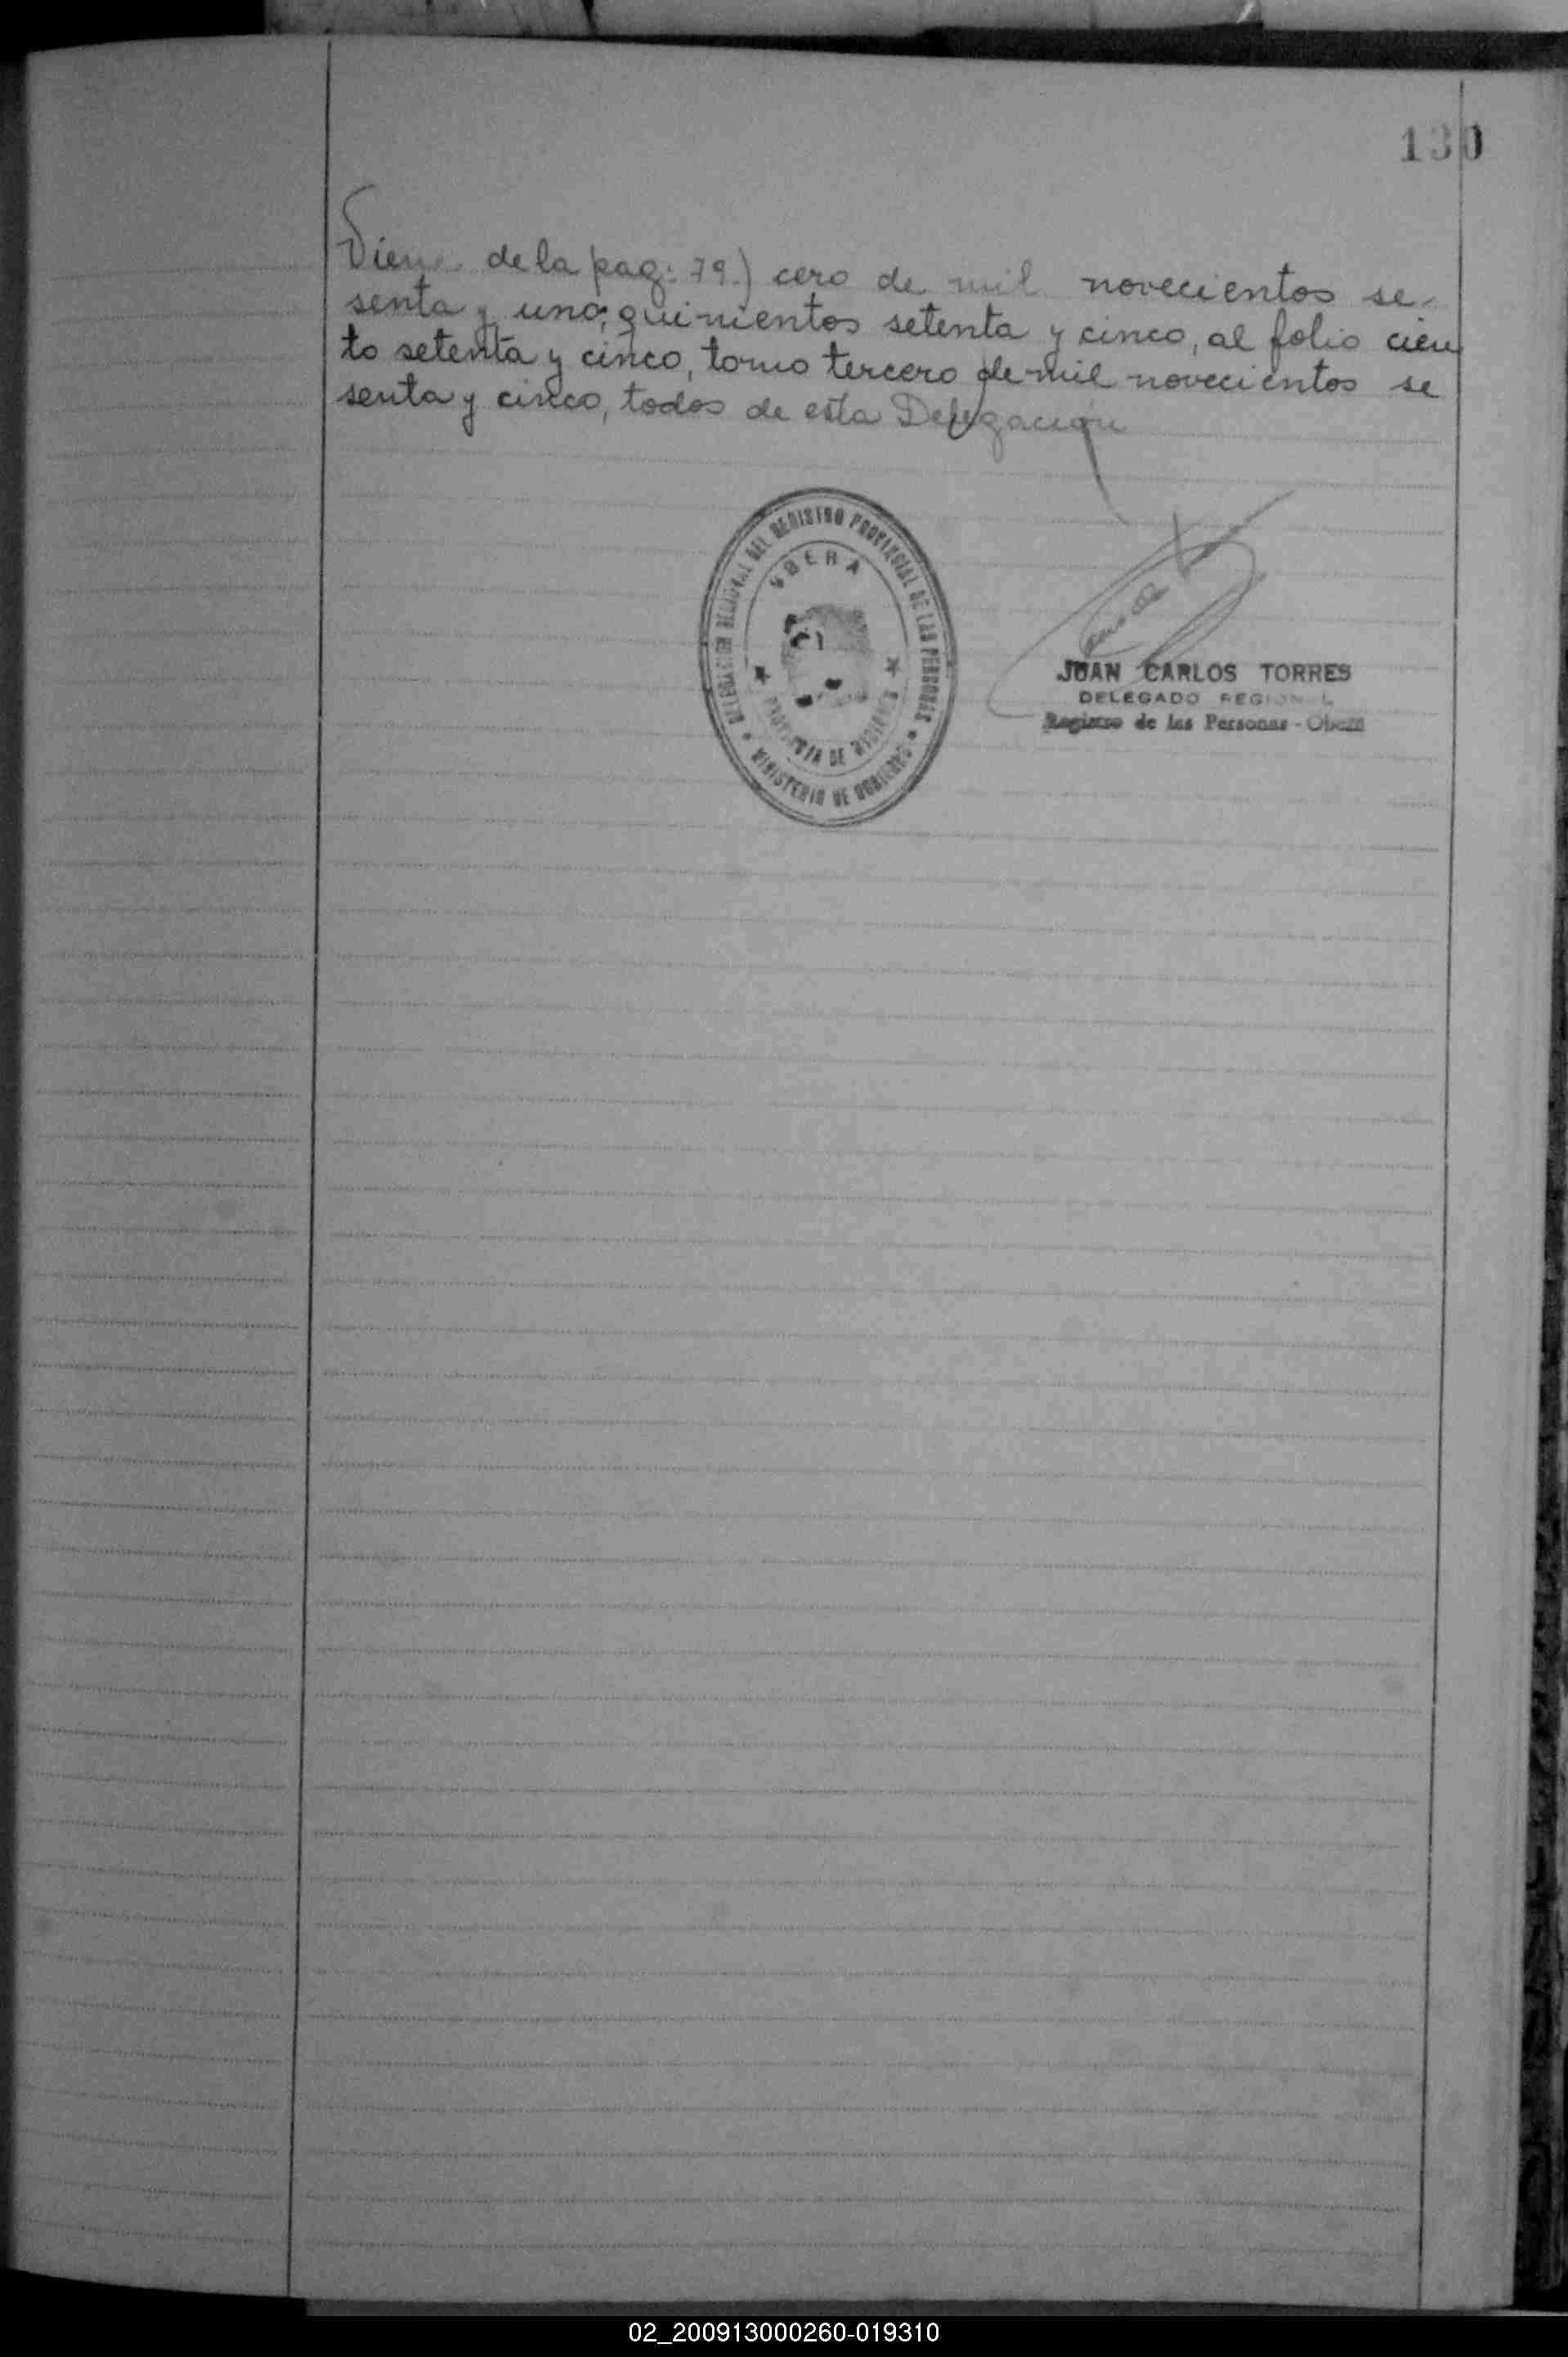 130
Viene de la pag: 79.) cero de mil novecientos se-
senta y uno; quinientos setenta y cinco, al folio cien
to setenta y cinco, tomo tercero de mil novecientos se
senta y cinco, todos de esta Delegación
DELEGACION REGIONAL DEL REGISTRO PROVINCIAL DE LAS PERSONAS
OBERA
PROVINCIA DE MISIONES
MINISTERIO DE GOBIERNO
JUAN CARLOS TORRES
DELEGADO REGIONAL
Registro de las Personas - Oberá
02_200913000260-019310